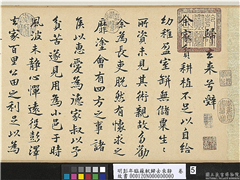 歸去來兮辭
余家貧耕植不足以自給
幼稚盈室缾無儲粟生
所資未見其術親故多勸
余為長吏脫然有懷求之
靡途會有四方之事諸
侯以惠愛為德家叔以予
貧苦遂見用為小邑于時
風波未靜心憚遠役彭澤
去家百里公田之利足以為
卷
故書000120N000000000
5